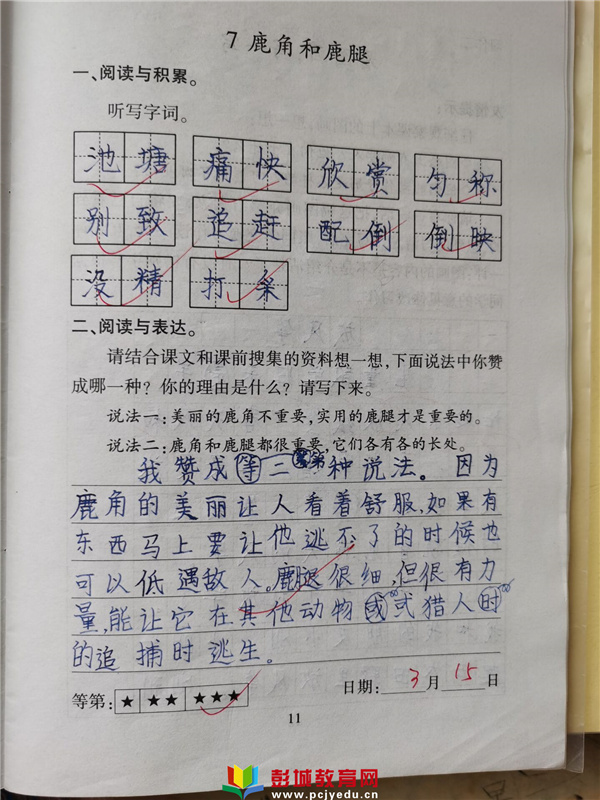 7 鹿角和鹿腿
一、阅读与积累。
听写字词。
池塘 痛快 欣赏 匀称
别致 追赶 配倒 倒映
没精 打采
二、阅读与表达。
请结合课文和课前搜集的资料想一想,下面说法中你赞
成哪一种？你的理由是什么？请写下来。
说法一:美丽的鹿角不重要,实用的鹿腿才是重要的。
说法二:鹿角和鹿腿都很重要,它们各有各的长处。
我赞成等二第种说法。因为
鹿角的美丽让人看着舒服,如果有
东西马上要让他逃不了的时候也
可以低遇敌人。鹿腿很细,但很有力
量,能让它在其他动物國式猎人时
的追捕时逃生。
等第: ★ ★★ ★★★ 日期: 3月15日
11
彭城教育网
www.pcjyedu.cn